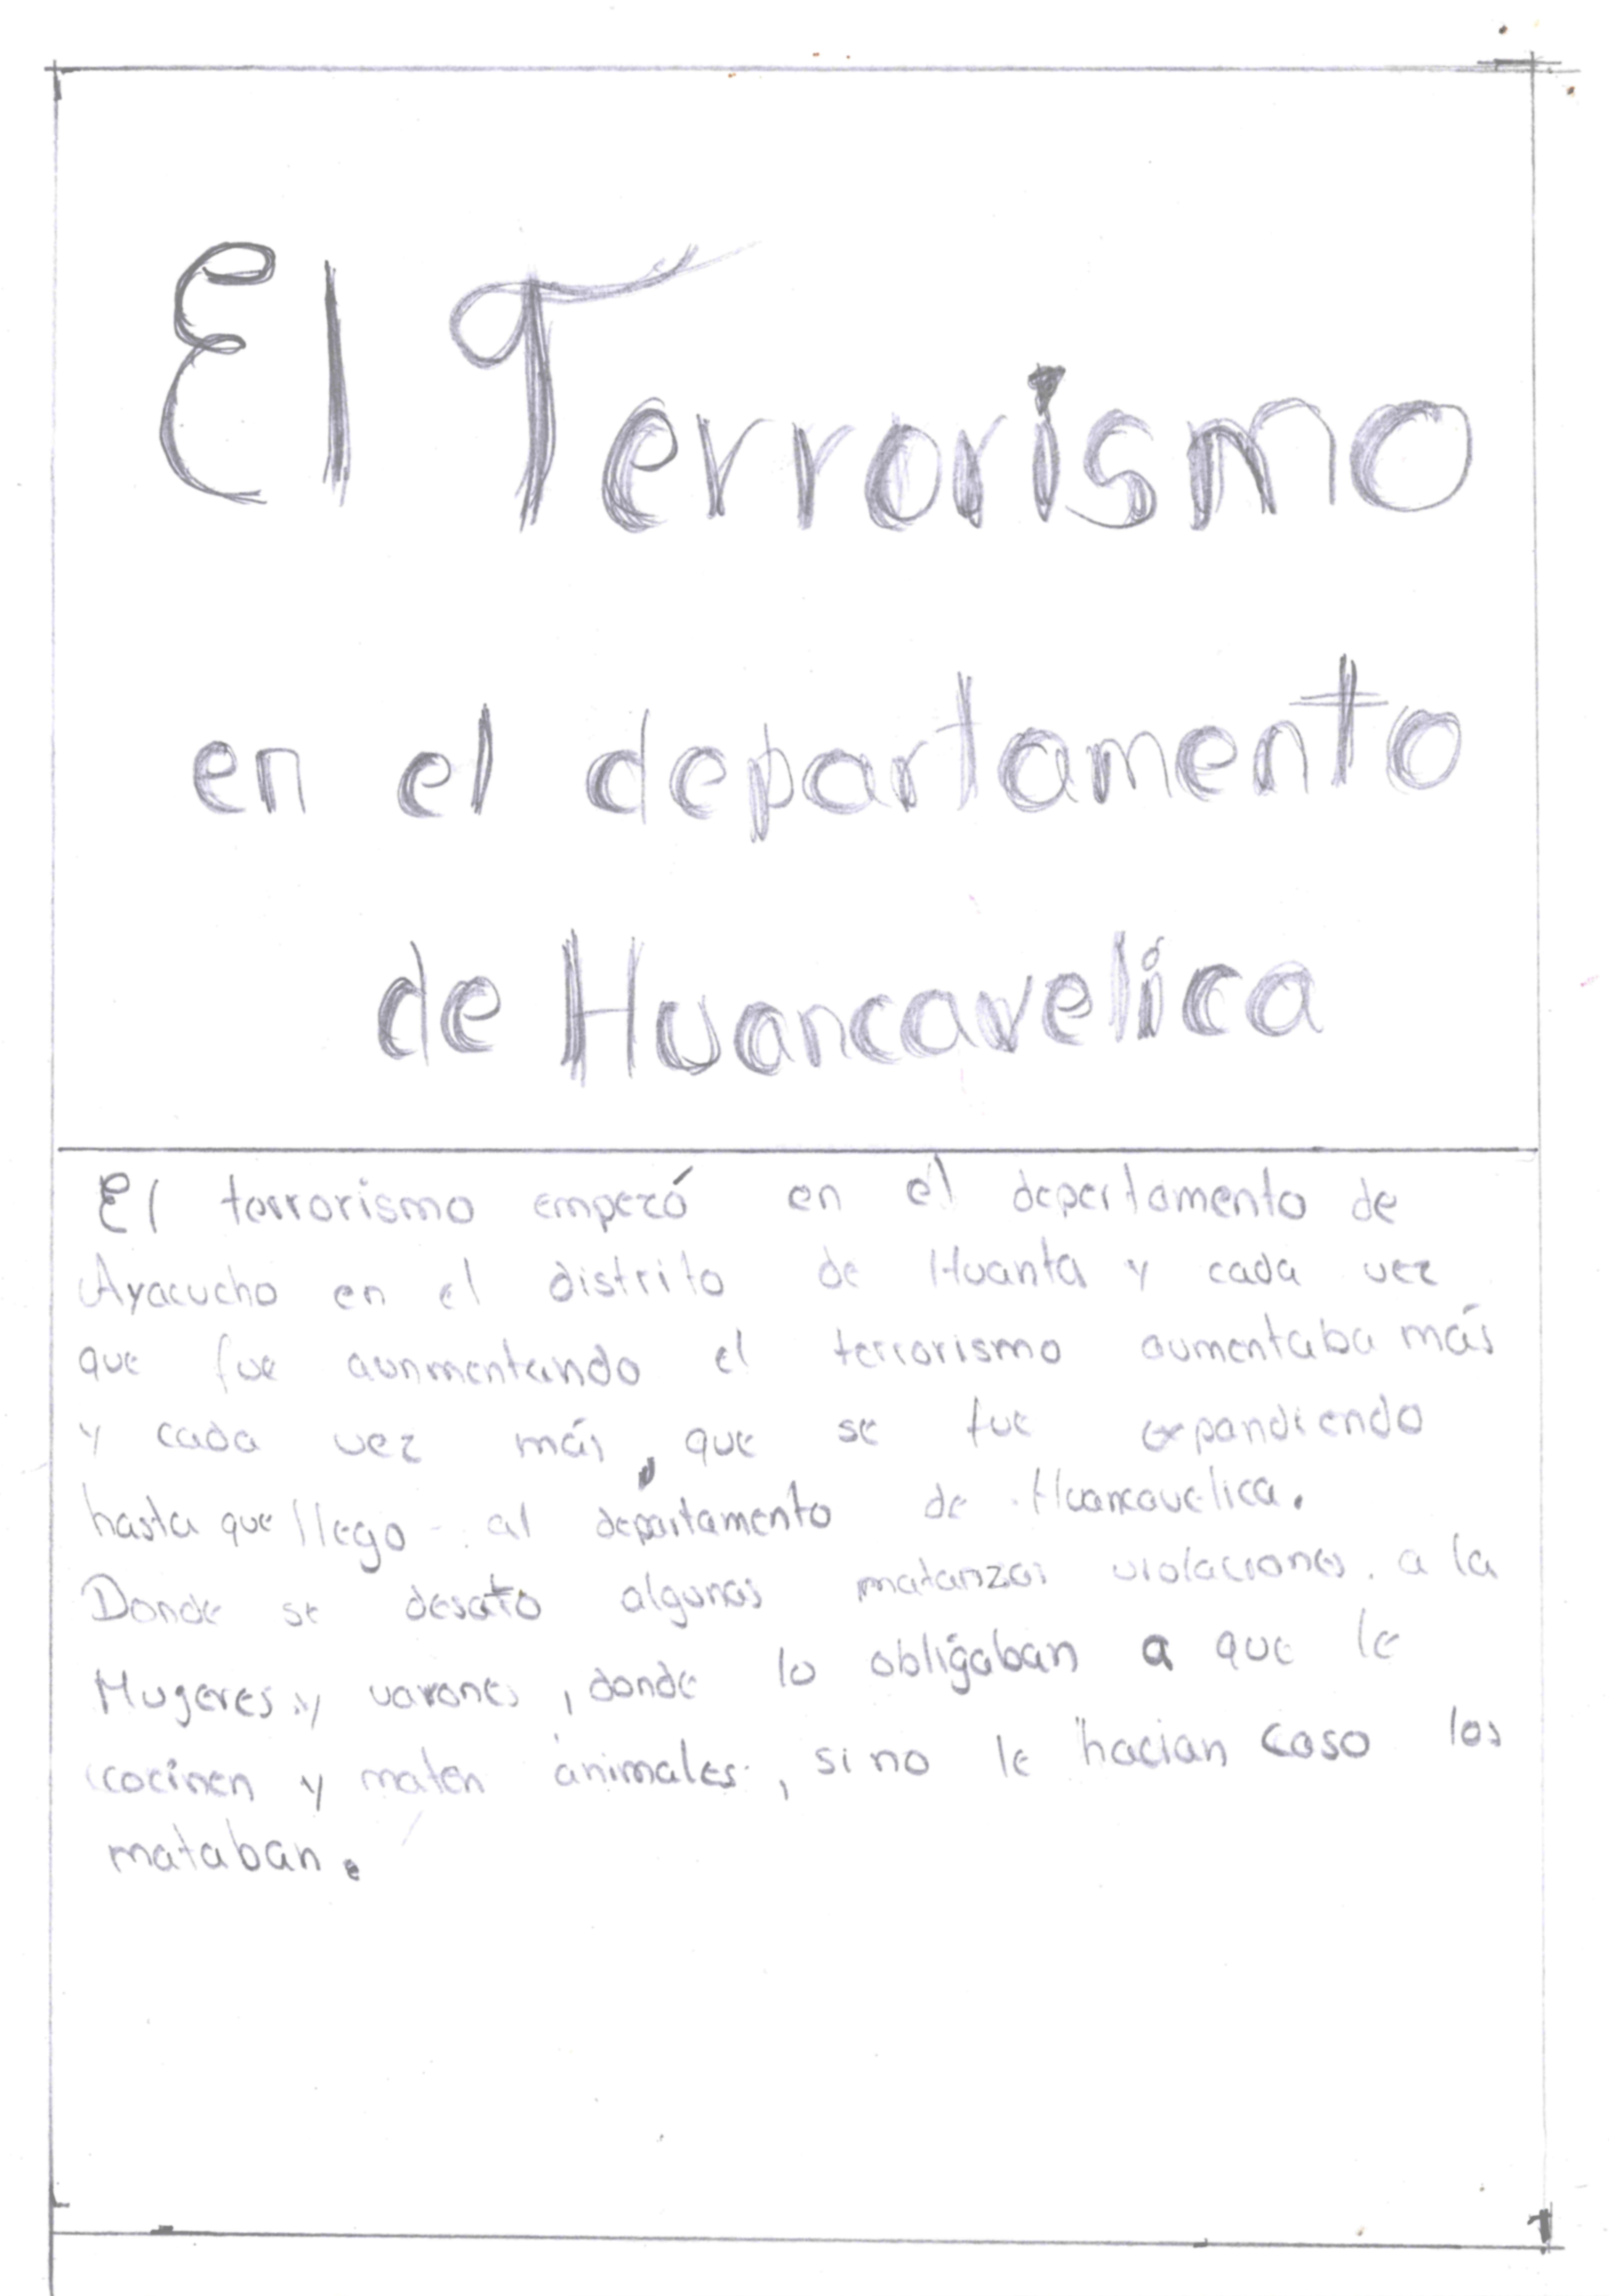 El Terrorismo
en el departamento
de Huancavelica
El terrorismo empezó en el depertamento de
Ayacucho en el distrito de Huanta y cada vez
que fue aunmentando el terrorismo aumentaba más
y cada vez más, que se fue expandiendo
hasta que llego al departamento de Huancavelica.
Donde se desato algunas matanzas violaciones. a la
Mugeres y varones, donde lo obligaban a que le
cocinen y maten animales, si no le hacian caso los
mataban.
1